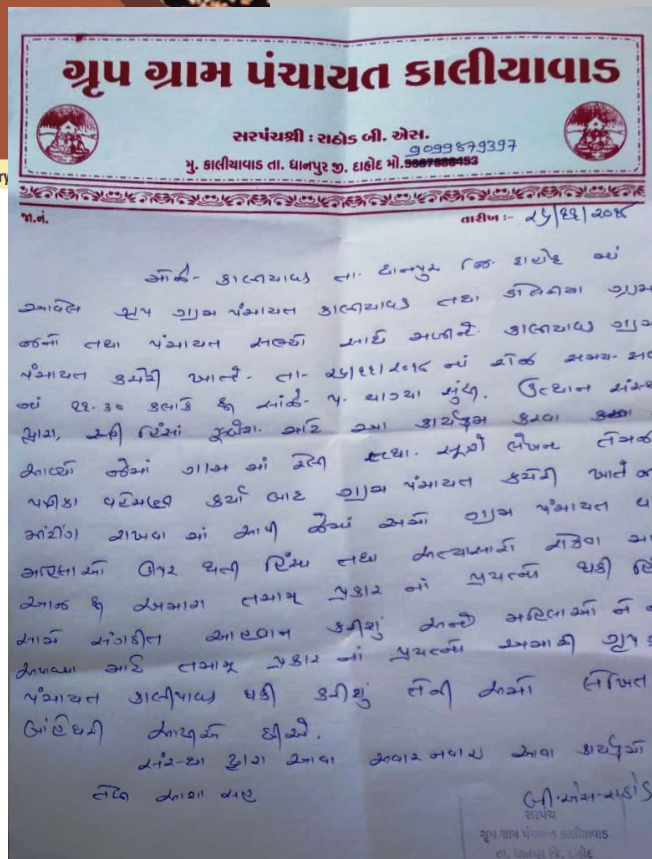 ગ્રૃપ ગ્રામ પંચાયત કાલીયાવાડ
સરપંચશ્રી : રાઠોડ બી. એસ.
9099879397
મુ. કાલીયાવાડ તા. ધાનપુર જી. દાહોદ મો.
જા.નં. તારીખ :- ૨૫/૧૧/૨૦૧૮
તા. ધાનપુર જિ. દાહોદ ના
ગ્રુપ ગ્રામ પંચાયત કાલીયાવાડ તથા ગ્રામ
જનો તથા પંચાયત સભ્યો સાથે મળીને કાલીયાવાડ ગ્રામ
પંચાયત કચેરી ખાતે તા- ૨૫/૧૧/૨૦૧૮ ના રોજ સમય-
૧૧.૩૦ કલાકે થી સાંજે- ૫. વાગ્યા સુધી. ઉત્થાન
દ્વારા, હિંસા ઝુંબેશ માટે આ કાર્યક્રમ કરવા
આવ્યો જેમાં ગામ માં રેલી તથા સૂત્રો લેખન તેમજ
પત્રીકા કર્યા બાદ ગ્રામ પંચાયત કચેરી ખાતે
મીટીંગ રાખવા માં આવી જેમાં અમો ગ્રામ પંચાયત
મહિલાઓ ઉપર થતી હિંસા તથા અત્યાચારો રોકવા
આજ થી અમારા તમામ પ્રકાર નાં પ્રયત્નો થકી
સામે કરીશું અને મહિલાઓ ને
અપાવવા માટે તમામ પ્રકાર નાં પ્રયત્નો અમારી ગ્રુપ
પંચાયત કાલીયાવાડ થકી કરીશું તેની અમો લેખિત
બાંહેધરી આપીએ છીએ.
સંસ્થા દ્વારા આવા અવાર નવાર આવા કાર્યક્રમો
તેવી આશા સહ
બી.એસ.રાઠોડ
સરપંચ
ગ્રુપ ગ્રામ પંચાયત કાલીયાવાડ
તા. ધાનપુર જિ. દાહોદ